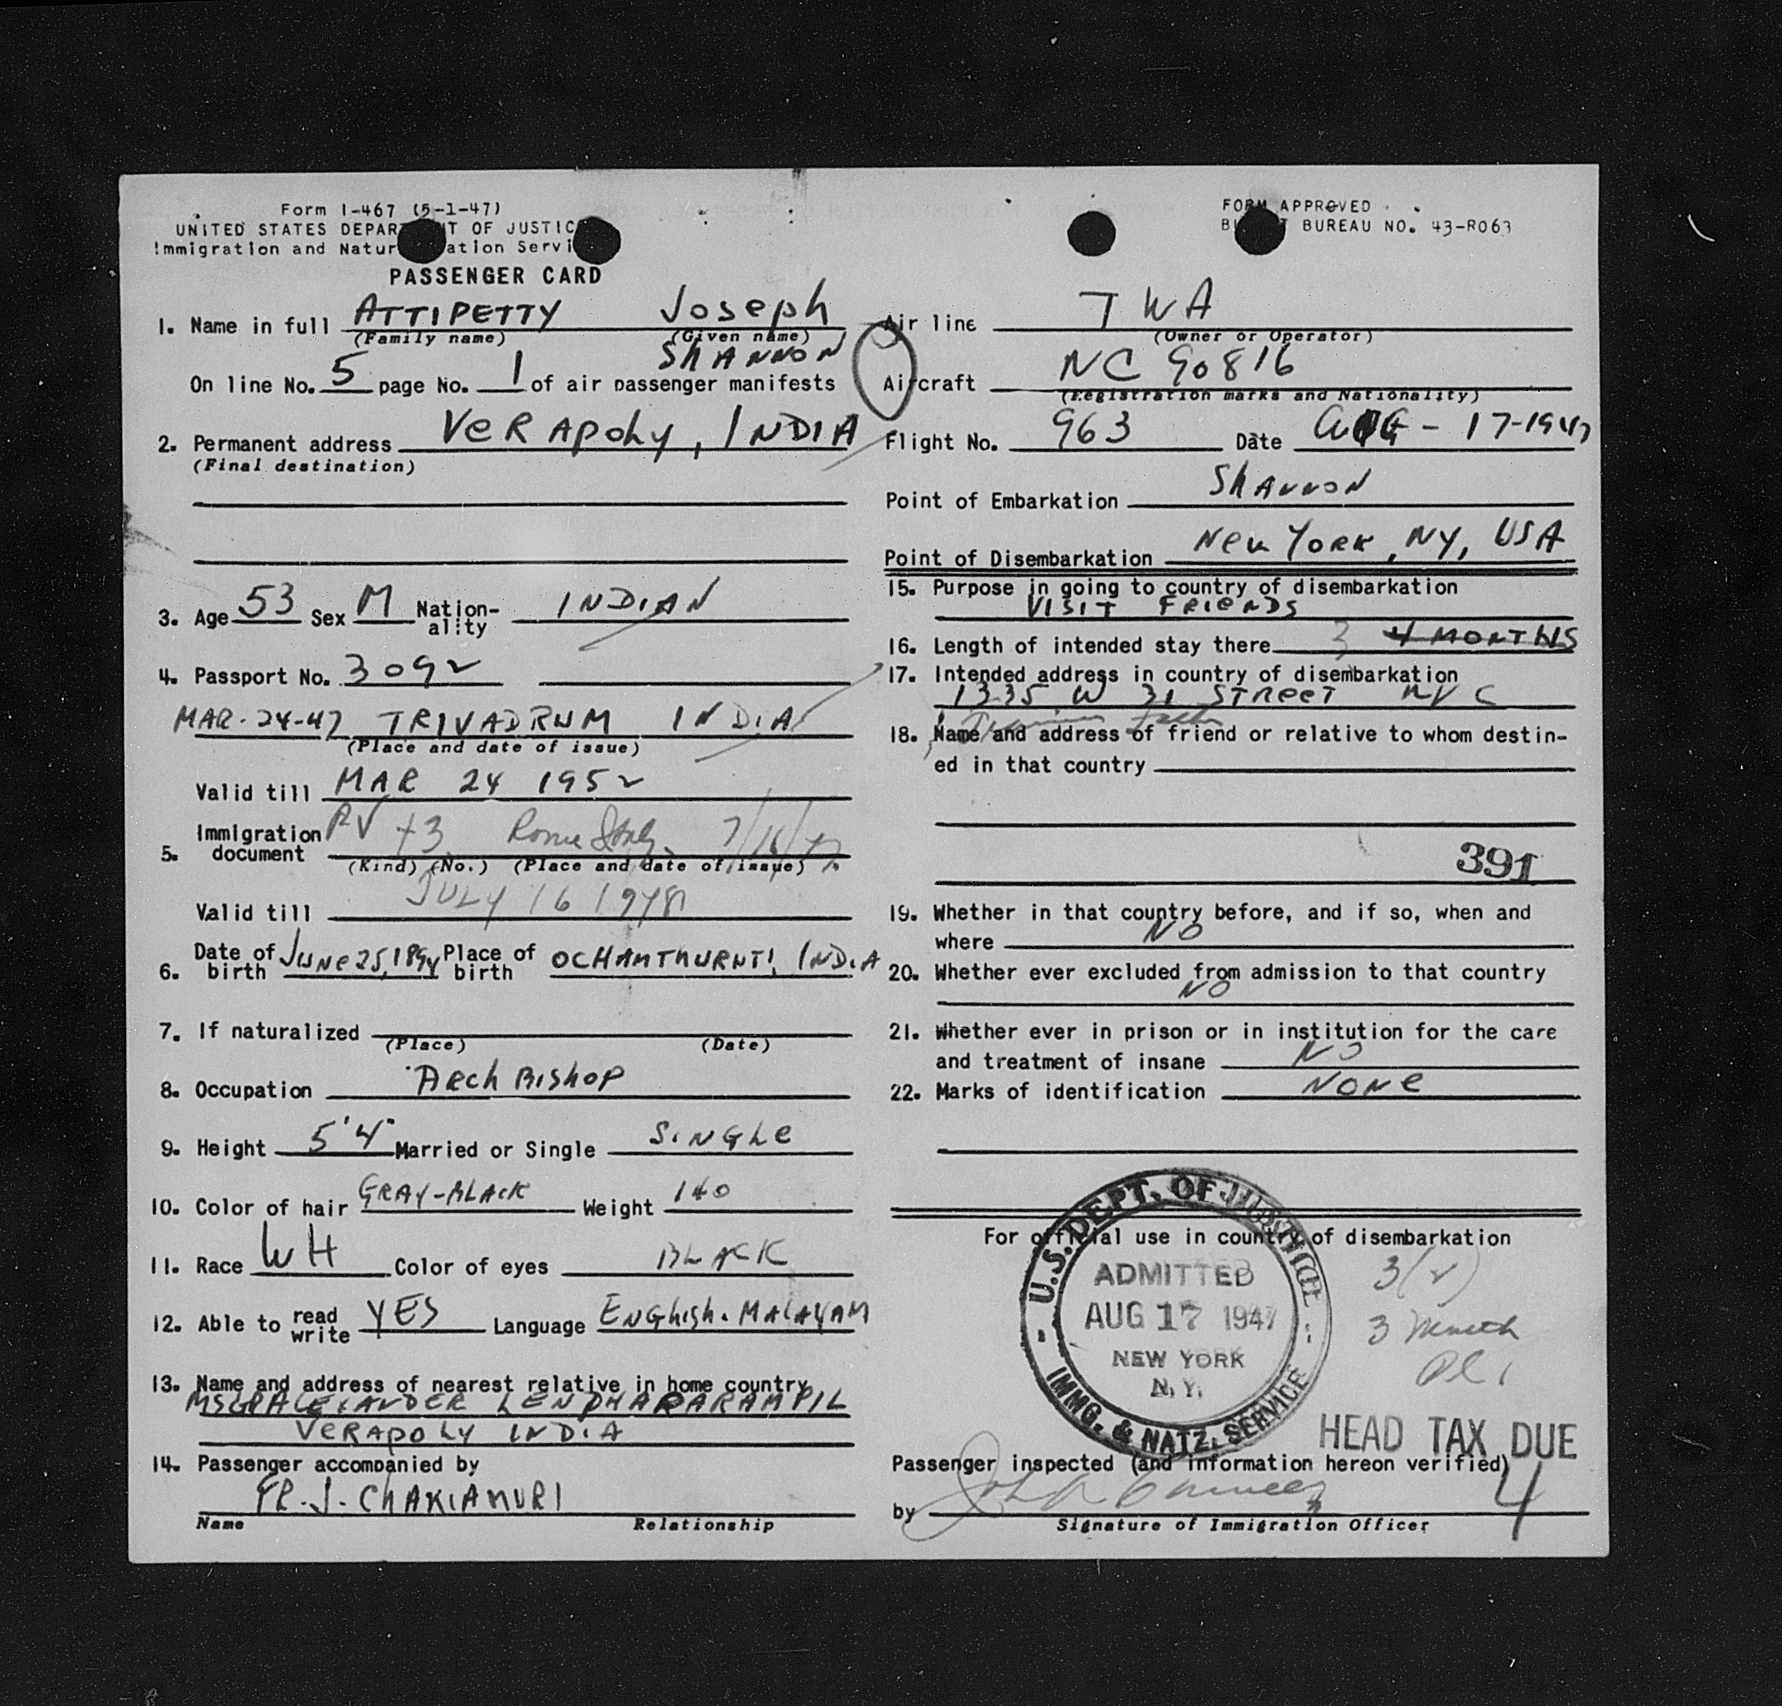 Form I-467 (5-1-47)
UNITED STATES DEPAR T OF JUSTIC
Immigration and Natur ation Servi
PASSENGER CARD
FORM APPROVED
BUREAU NO. 43-R063
1. Name in full ATTIPETTY Joseph
(Family name) (Given name)
SHANNON
On line No. 5 page No. 1 of air passenger manifests
2. Permanent address VERAPOLY, INDIA
(Final destination)
3. Age 53 Sex M Nation-ality INDIAN
4. Passport No. 3092
MAR-24-47 TRIVADRUM INDIA
(Place and date of issue)
Valid till MAR 24 1952
5. Immigration document PV +3 Rome Italy 7/16/47
(Kind) (No.) (Place and date of issue)
Valid till JULY 16 1948
6. Date of birth JUNE 25, 1894 Place of birth OCHAMTHURUTI, INDIA
7. If naturalized
(Place) (Date)
8. Occupation ARCHBISHOP
9. Height 5'4" Married or Single SINGLE
10. Color of hair GRAY-BLACK Weight 140
11. Race WH Color of eyes BLACK
12. Able to read write YES Language ENGLISH. MALAYAM
13. Name and address of nearest relative in home country
MSGR ALEXANDER
VERAPOLY INDIA
14. Passenger accompanied by
FR. J. CHAKIAMURI
Name Relationship
Air line TWA
(Owner or Operator)
Aircraft NC 90816
(Registration marks and Nationality)
Flight No. 963 Date AUG-17-1947
Point of Embarkation SHANNON
Point of Disembarkation NEW YORK, NY, USA
15. Purpose in going to country of disembarkation
VISIT FRIENDS
16. Length of intended stay there 3 4 MONTHS
17. Intended address in country of disembarkation
1335 W 31 STREET NYC
18. Name and address of friend or relative to whom destin-
ed in that country
391
19. Whether in that country before, and if so, when and
where NO
20. Whether ever excluded from admission to that country
NO
21. Whether ever in prison or in institution for the care
and treatment of insane NO
22. Marks of identification NONE
For official use in country of disembarkation
U.S. DEPT. OF JUSTICE
ADMITTED
AUG 17 1947
NEW YORK
N.Y.
IMMG. & NATZ. SERVICE
3(2)
3 Month
HEAD TAX DUE
Passenger inspected (and information hereon verified)
4
by
Signature of Immigration Officer